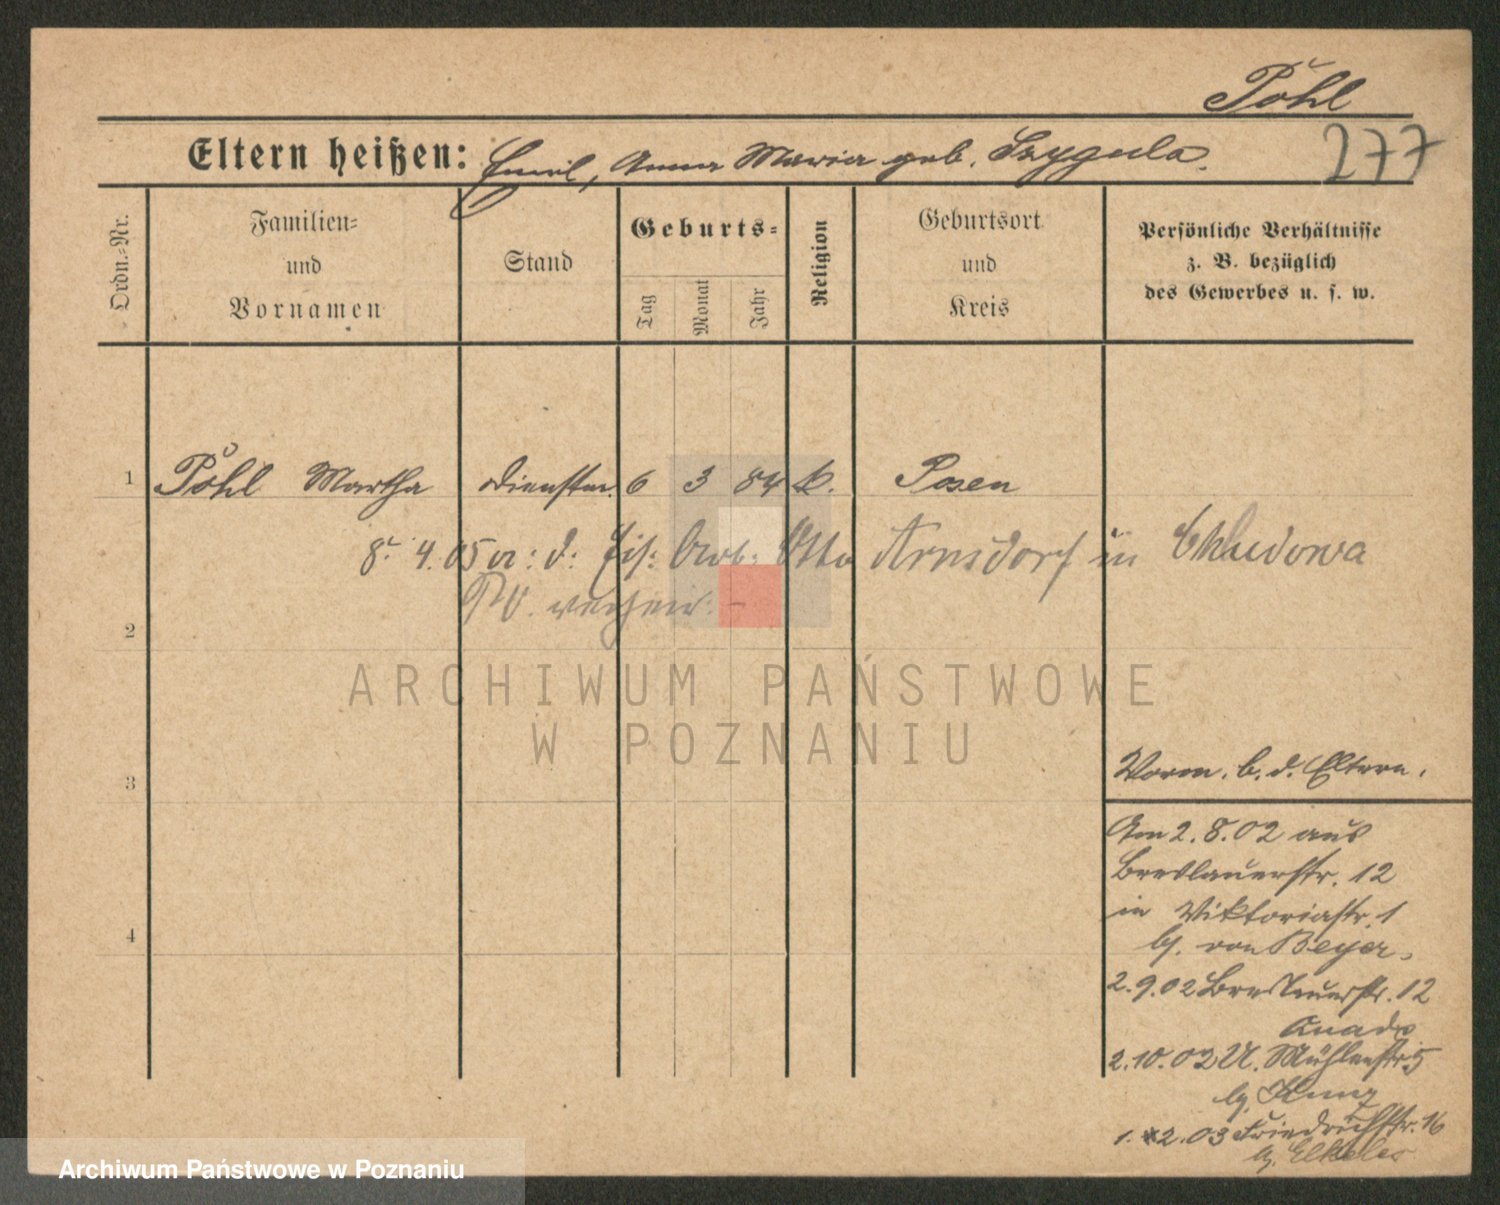 Pohl
Eltern heißen: Emil, Anna Maria geb. Szygula.
277
Ordn.-Nr.
Familien-
und
Vornamen
Stand
Geburts-
Tag
Monat
Jahr
Religion
Geburtsort
und
Kreis
Persönliche Verhältnisse
z. B. bezüglich
des Gewerbes u. s. w.
1 Pohl Martha Dienstm. 6 3 84 k. Posen
8. 4. 05 d: Eis: Arb: Otto Arnsdorf in Chludowa
2
ARCHIWUM PAŃSTWOWE
W POZNANIU
3
Vorm. b. d. Eltern.
Am 2. 8. 02 aus
Breslauerstr. 12
in Viktoriastr. 1
bj. von Beyer.
2. 9. 02 Breslauerstr. 12
4
2. 10. 02 U. Mühlenstr. 5
bj. Kunz
1. 2. 03 Friedrichstr. 16
bj. Elkeles
Archiwum Państwowe w Poznaniu